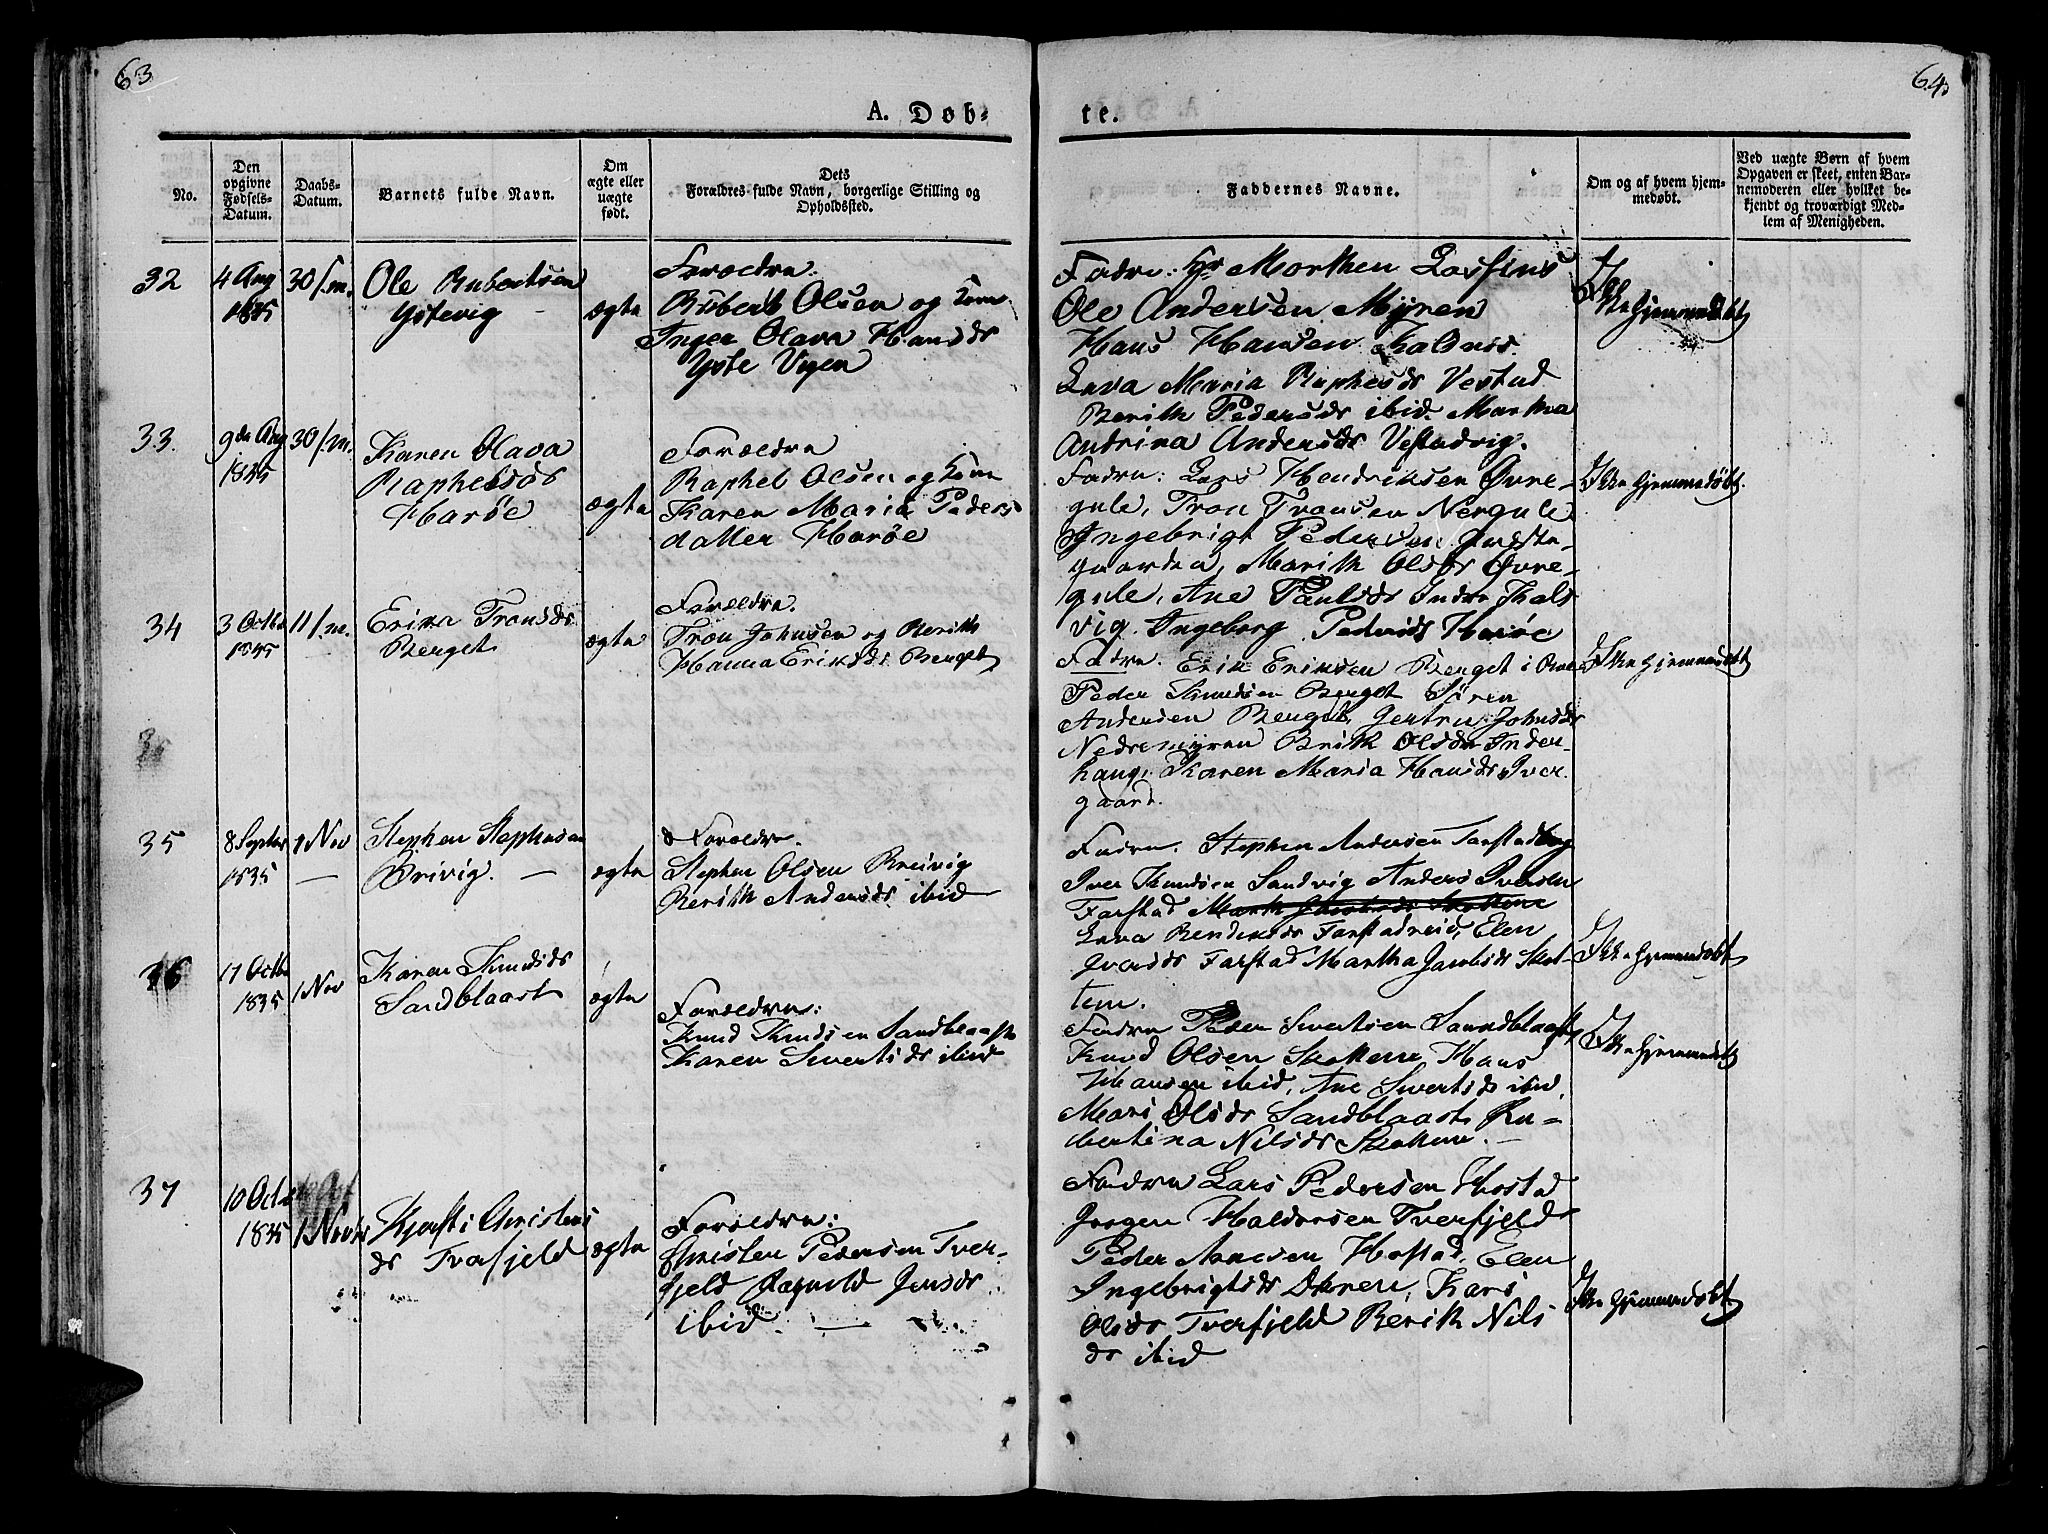 63
64
A. Døb-
te.
No.
Den
opgivne
Fødsels-
Datum.
Daabs-
Datum.
Barnets fulde Navn.
Om
ægte eller
uægte
født.
Dets
Forældres fulde Navn, borgerlige Stilling og
Opholdssted.
Faddernes Navne.
Om og af hvem hjem-
medøbt.
Ved uægte Børn af hvem
Opgaven er skeet, enten Bar-
nemoderen eller hvilket be-
kjendt og troværdigt Med-
lem af Menigheden.
32
4 Aug
1835
30 s.m.
Ole Rubertsen
Ystevig
ægte
Foræeldre:
Rubert Olsen og Kone
Inger Olava Hansds
Yste Vigen
Fadre: Hr Morthen
Ole Andersen Myren
Hans Hansen Kalsnes
Lava Maria Raphesds Vestad
Berith Pedersds ibid. Martha
Andrina Andersds Vestadvig.
Ikke Hjemmedøbt
33.
9de Aug
1835
30 s.m.
Karen Olava
Raphelsds
Harøe
ægte
Foræeldre
Raphel Olsen og Kone
Karen Maria Peders
datter Harøe
Fadre: Lars Hendriksen Øvre-
gule, Tron Tronsen Nergule
Ingebrigt Pedersen Præste-
gaarden, Marith Olsds Øvre-
gule, Ane Paulsds Indre Kals
vig. Ingeborg Pedersds Harøe
Ikke Hjemmedøbt.
34
3 Octbr
1835
11 s.m.
Erika Tronsds
Berget
ægte
Forældre.
Tron Johnsen og Berith
Hanna Eriksds Berget
Fadre. Erik Eriksen Berget i
Peder Knudsen Berget Søren
Andersen Berget, Gertru Johnsds
Nedremyren Brith Olsds Inder-
haug, Karen Maria Hansds Iver
gaard.
Ikke Hjemmedøbt
35
8 Septbr
1835
1 Nov
—
Stephen Stephensen
Brivig. —
ægte
Forældre.
Stephen Olsen Breivig
Berith Andersds ibid
Fadre. Stephen Andersen Farstadvog
Iver Knudsen Sandvig Anders Iversen
Farstad
Lava Bendiksds Farstadreid, Elen
Iversds Farstad Martha Jacobsds Skot-
tem.
Ikke Hjemmedøbt
36
17 Octbr
1835
1 Nov
Karen Knudsds
Sandblaast
ægte
Forældre:
Knud Knudsen Sandblaast
Karen Sivertsds ibid
Fadre Peder Sivertsen Sandblaast,
Knud Olsen Skottem, Hans
Hansen ibid, Ane Sivertsds ibid,
Mari Olsds Sandblaast Ru-
bertina Nilsds Skottem. —
Ikke Hjemmedøbt
37
10 Octbr
1835
1 Novbr
Kjersti Christens
ds Tverfjeld
ægte
Forældre:
Christen Pedersen Tver-
fjeld Ragnild Jensds
ibid. —
Fadre Lars Pedersen Hostad
Jørgen Haldorsen Tverfjeld
Peder Hostad, Elen
Ingebrigtsds Kari
Olsds Tverfjeld Berith Nils
ds ibid
Ikke Hjemmedøbt